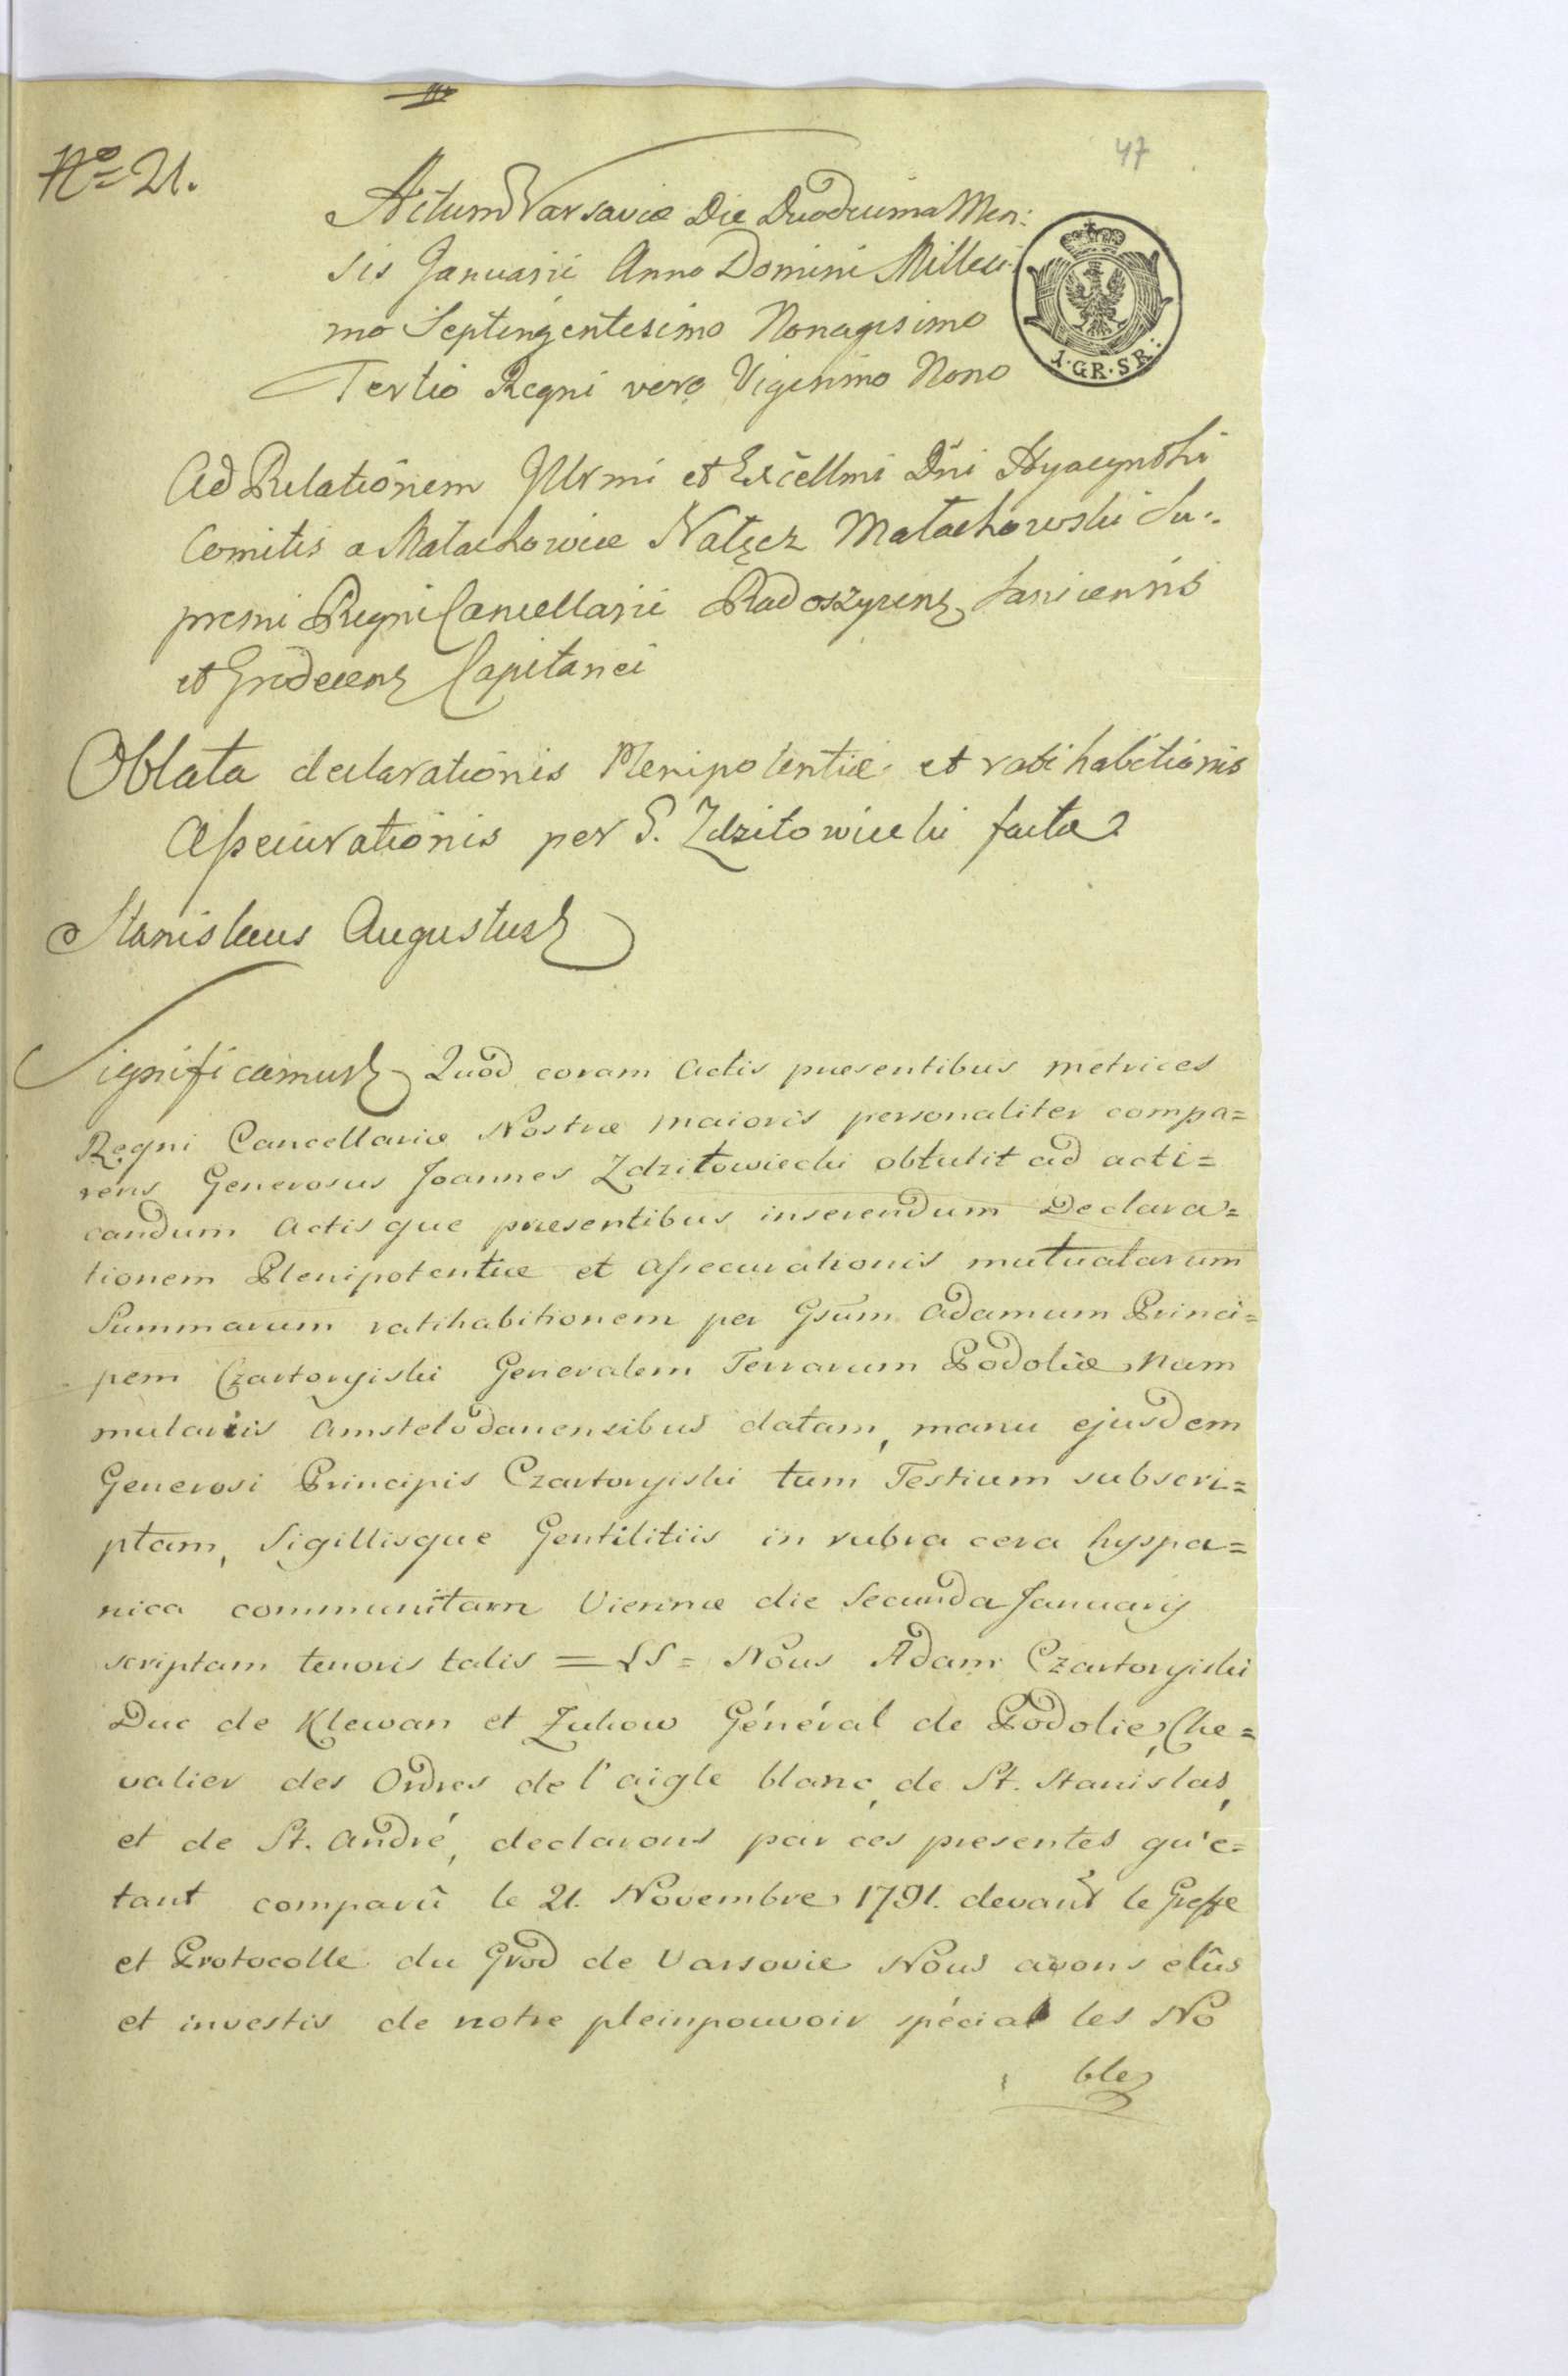 47
No= 21.
Actum Varsaviæ Die Duodecima Men:
sis Januarii Anno Domini Millesi:
mo Septingentesimo Nonagesimo
Tertio Regni vero Vigesimo Nono
1·GR·SR:
Ad Relationem Illrmi et Excellmi Dni Hyacynthi
Comitis a Małachowice Nałęcz Małachowski Su:
premi Regni Cancellarii Radoszycens
et Grodecens Capitanei
Oblata declarationis Plenipotentiæ et ratihabitionis
Assecurationis per G. Zdzitowiecki facta
Stanislaus Augustus
Significamus Quod coram Actis præsentibus metrices
Regni Cancellariæ Nostræ maioris personaliter compa=
rens Generosus Joannes Zdzitowiecki obtulit ad acti=
candum Actisque præsentibus inserendum Declara=
tionem Plenipotentiæ et Assecurationis mutuatarum
Summarum ratihabitionem per Gsum Adamum Princi=
pem Czartoryiski Generalem Terrarum Podoliæ Num
mulariis Amstelodanensibus datam, manu ejusdem
Generosi Principis Czartoryiski tum Testium subscri=
ptam, Sigillisque Gentilitiis in rubra cera hyspa=
nica communitam Viennæ die Secunda Januarij
scriptam tenoris talis = LS = Nous Adam Czartoryiski
Duc de Klewan et Zukow Général de Podolie, Che=
valier des Ordres de l'aigle blanc, de St. Stanislas,
et de St. André, declarons par ces presentes qu'e=
tant comparû le 21. Novembre 1791. devant le Greffe
et Protocolle du Grod de Varsovie Nous avons elûs
et investis de notre pleinpouvoir spécial les No
bles